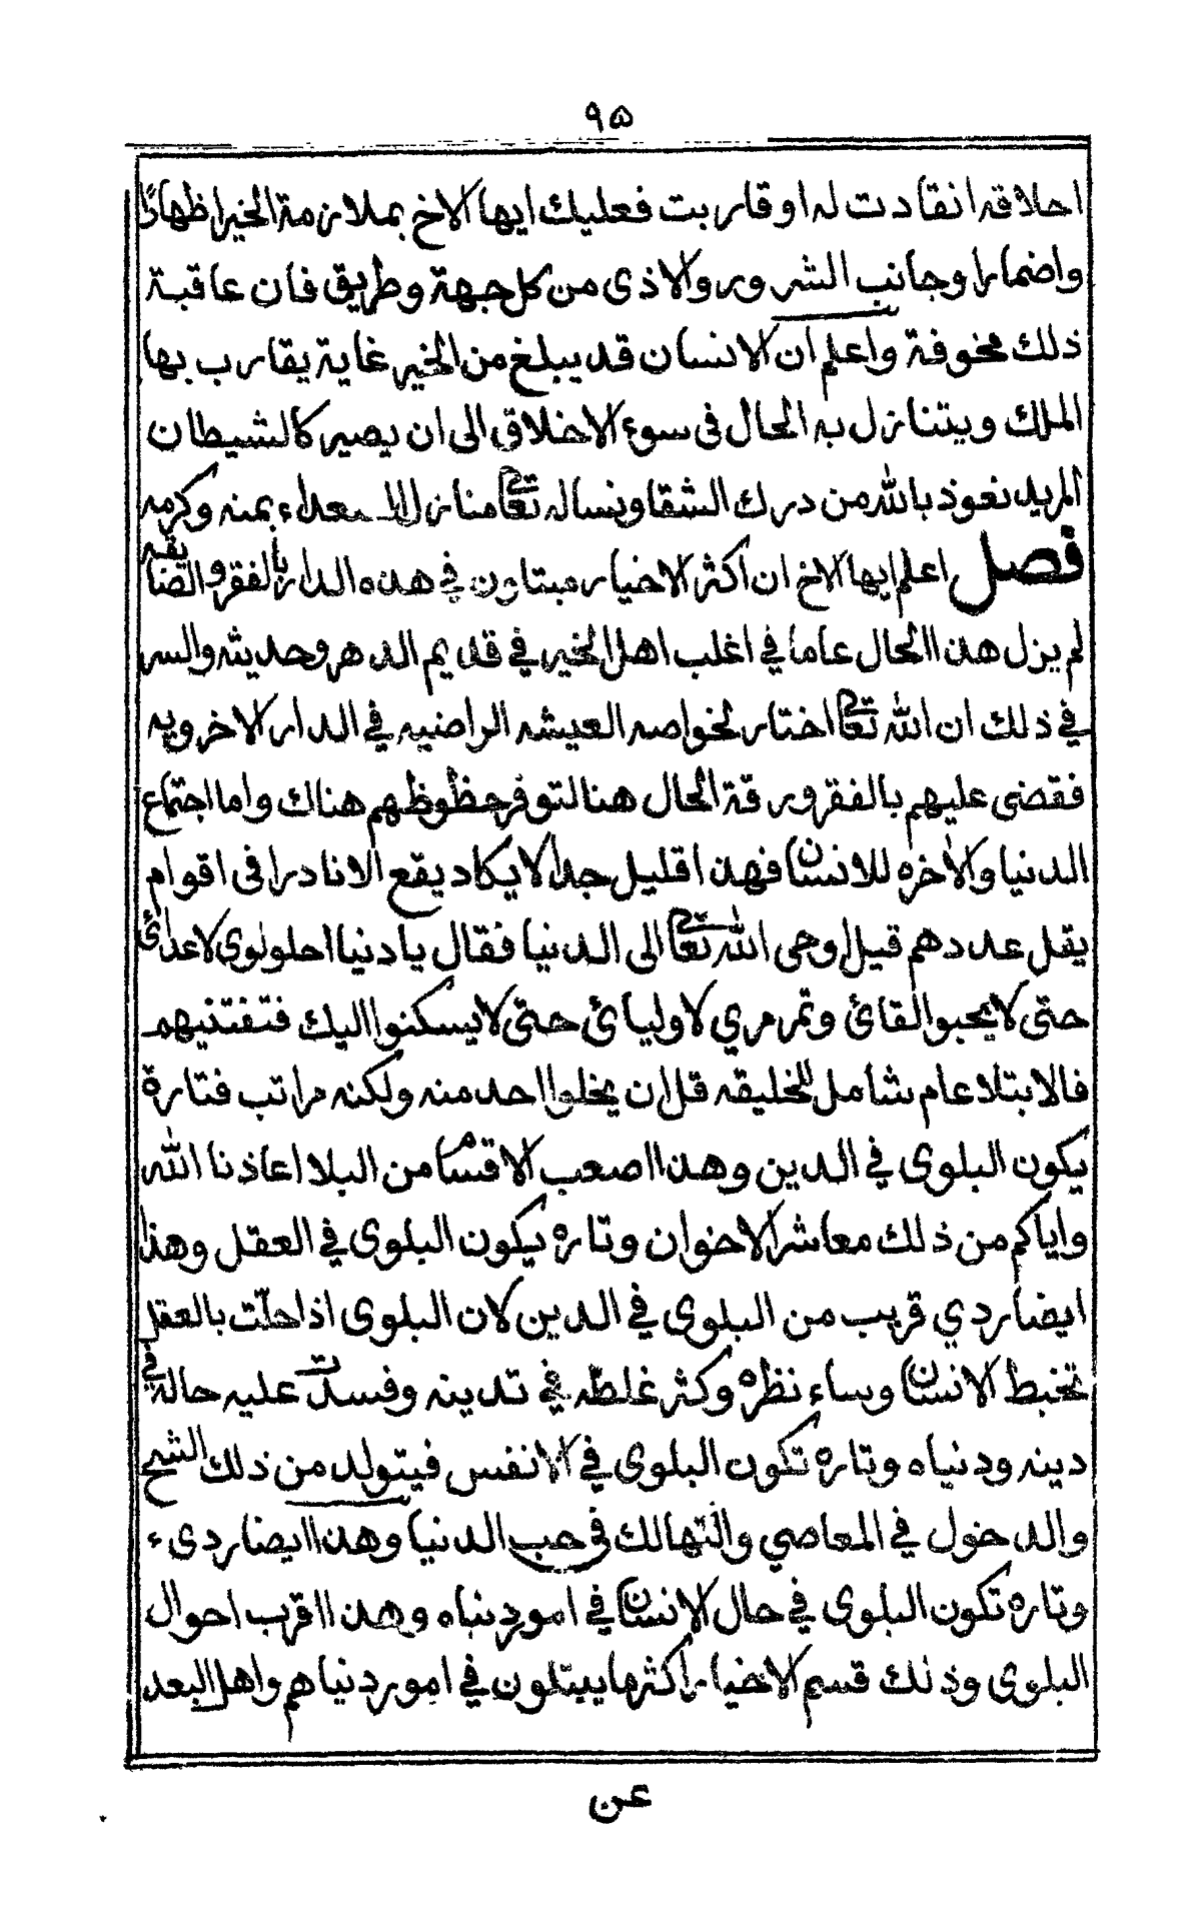 ٩٥
احلاقه انقادت له او قاربت فعليك ايها الاخ بملازمة الخير اظهارًا
واضمارا وجانب الشرور والاذى من كل جهة وطريق فان عاقبة
ذلك مخوفة واعلم ان الانسان قد يبلغ من الخير غاية يقارب بها
الملك ويتنازل به الحال فى سوء الاخلاق الى ان يصير كالشيطان
المريد نعوذ بالله من درك الشقا ونساله تعالى منازل السعداء بمنه وكرمه
فصل اعلم ايها الاخ ان اكثر الاخيار مبتلون في هذه الدار بالفقر والضائقه
لم يزل هذا الحال عاما في اغلب اهل الخير في قديم الدهر وحديثه والسر
في ذلك ان الله تعالى اختار لخواصه العيشه الراضيه في الدار الاخرويه
فقضى عليهم بالفقر ورقة الحال هنا لتوفر حظوظهم هناك واما اجتماع
الدنيا والاخره للانسان فهذا قليل جدا لا يكاد يقع الا نادرا فى اقوام
يقل عددهم قيل اوحى الله تعالى الى الدنيا فقال يا دنيا احلولوى لاعدائى
حتى لا يحبوا لقائ وتمرمري لاوليائ حتى لا يسكنوا اليك فتفتنيهم
فالابتلا عام شامل للخليقه قل ان يخلوا احد منه ولكنه مراتب فتارة
يكون البلوى في الدين وهذا اصعب الاقسام من البلا اعاذنا الله
واياكم من ذلك معاشر الاخوان وتاره يكون البلوى في العقل وهذا
ايضا ردي قريب من البلوى في الدين لان البلوى اذا حلّت بالعقل
تخبط الانسان وساء نظره وكثر غلطه في تدينه وفسدت عليه حالة في
دينه ودنياه وتاره تكون البلوى في الانفس فيتولد من ذلك الشح
والدخول في المعاصي والتهالك فى حب الدنيا وهذا ايضا ردىء
وتاره تكون البلوى في حال الانسان في امور دنياه وهذا اقرب احوال
البلوى وذلك قسم الاخيار اكثر ما يبتلون في امور دنياهم واهل البعد
عن